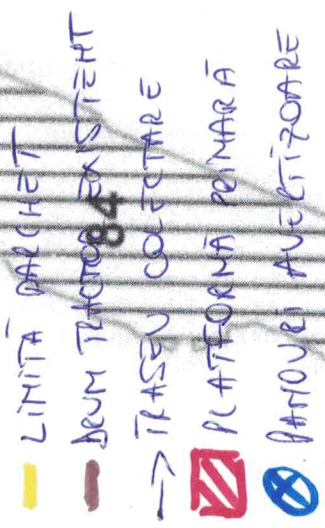 LIMITĂ PARCHET
DRUM TRACTOR EXISTENT
84
TRASEU COLECTARE
PLATFORMĂ PRIMARĂ
PANOURI AVERTIZOARE